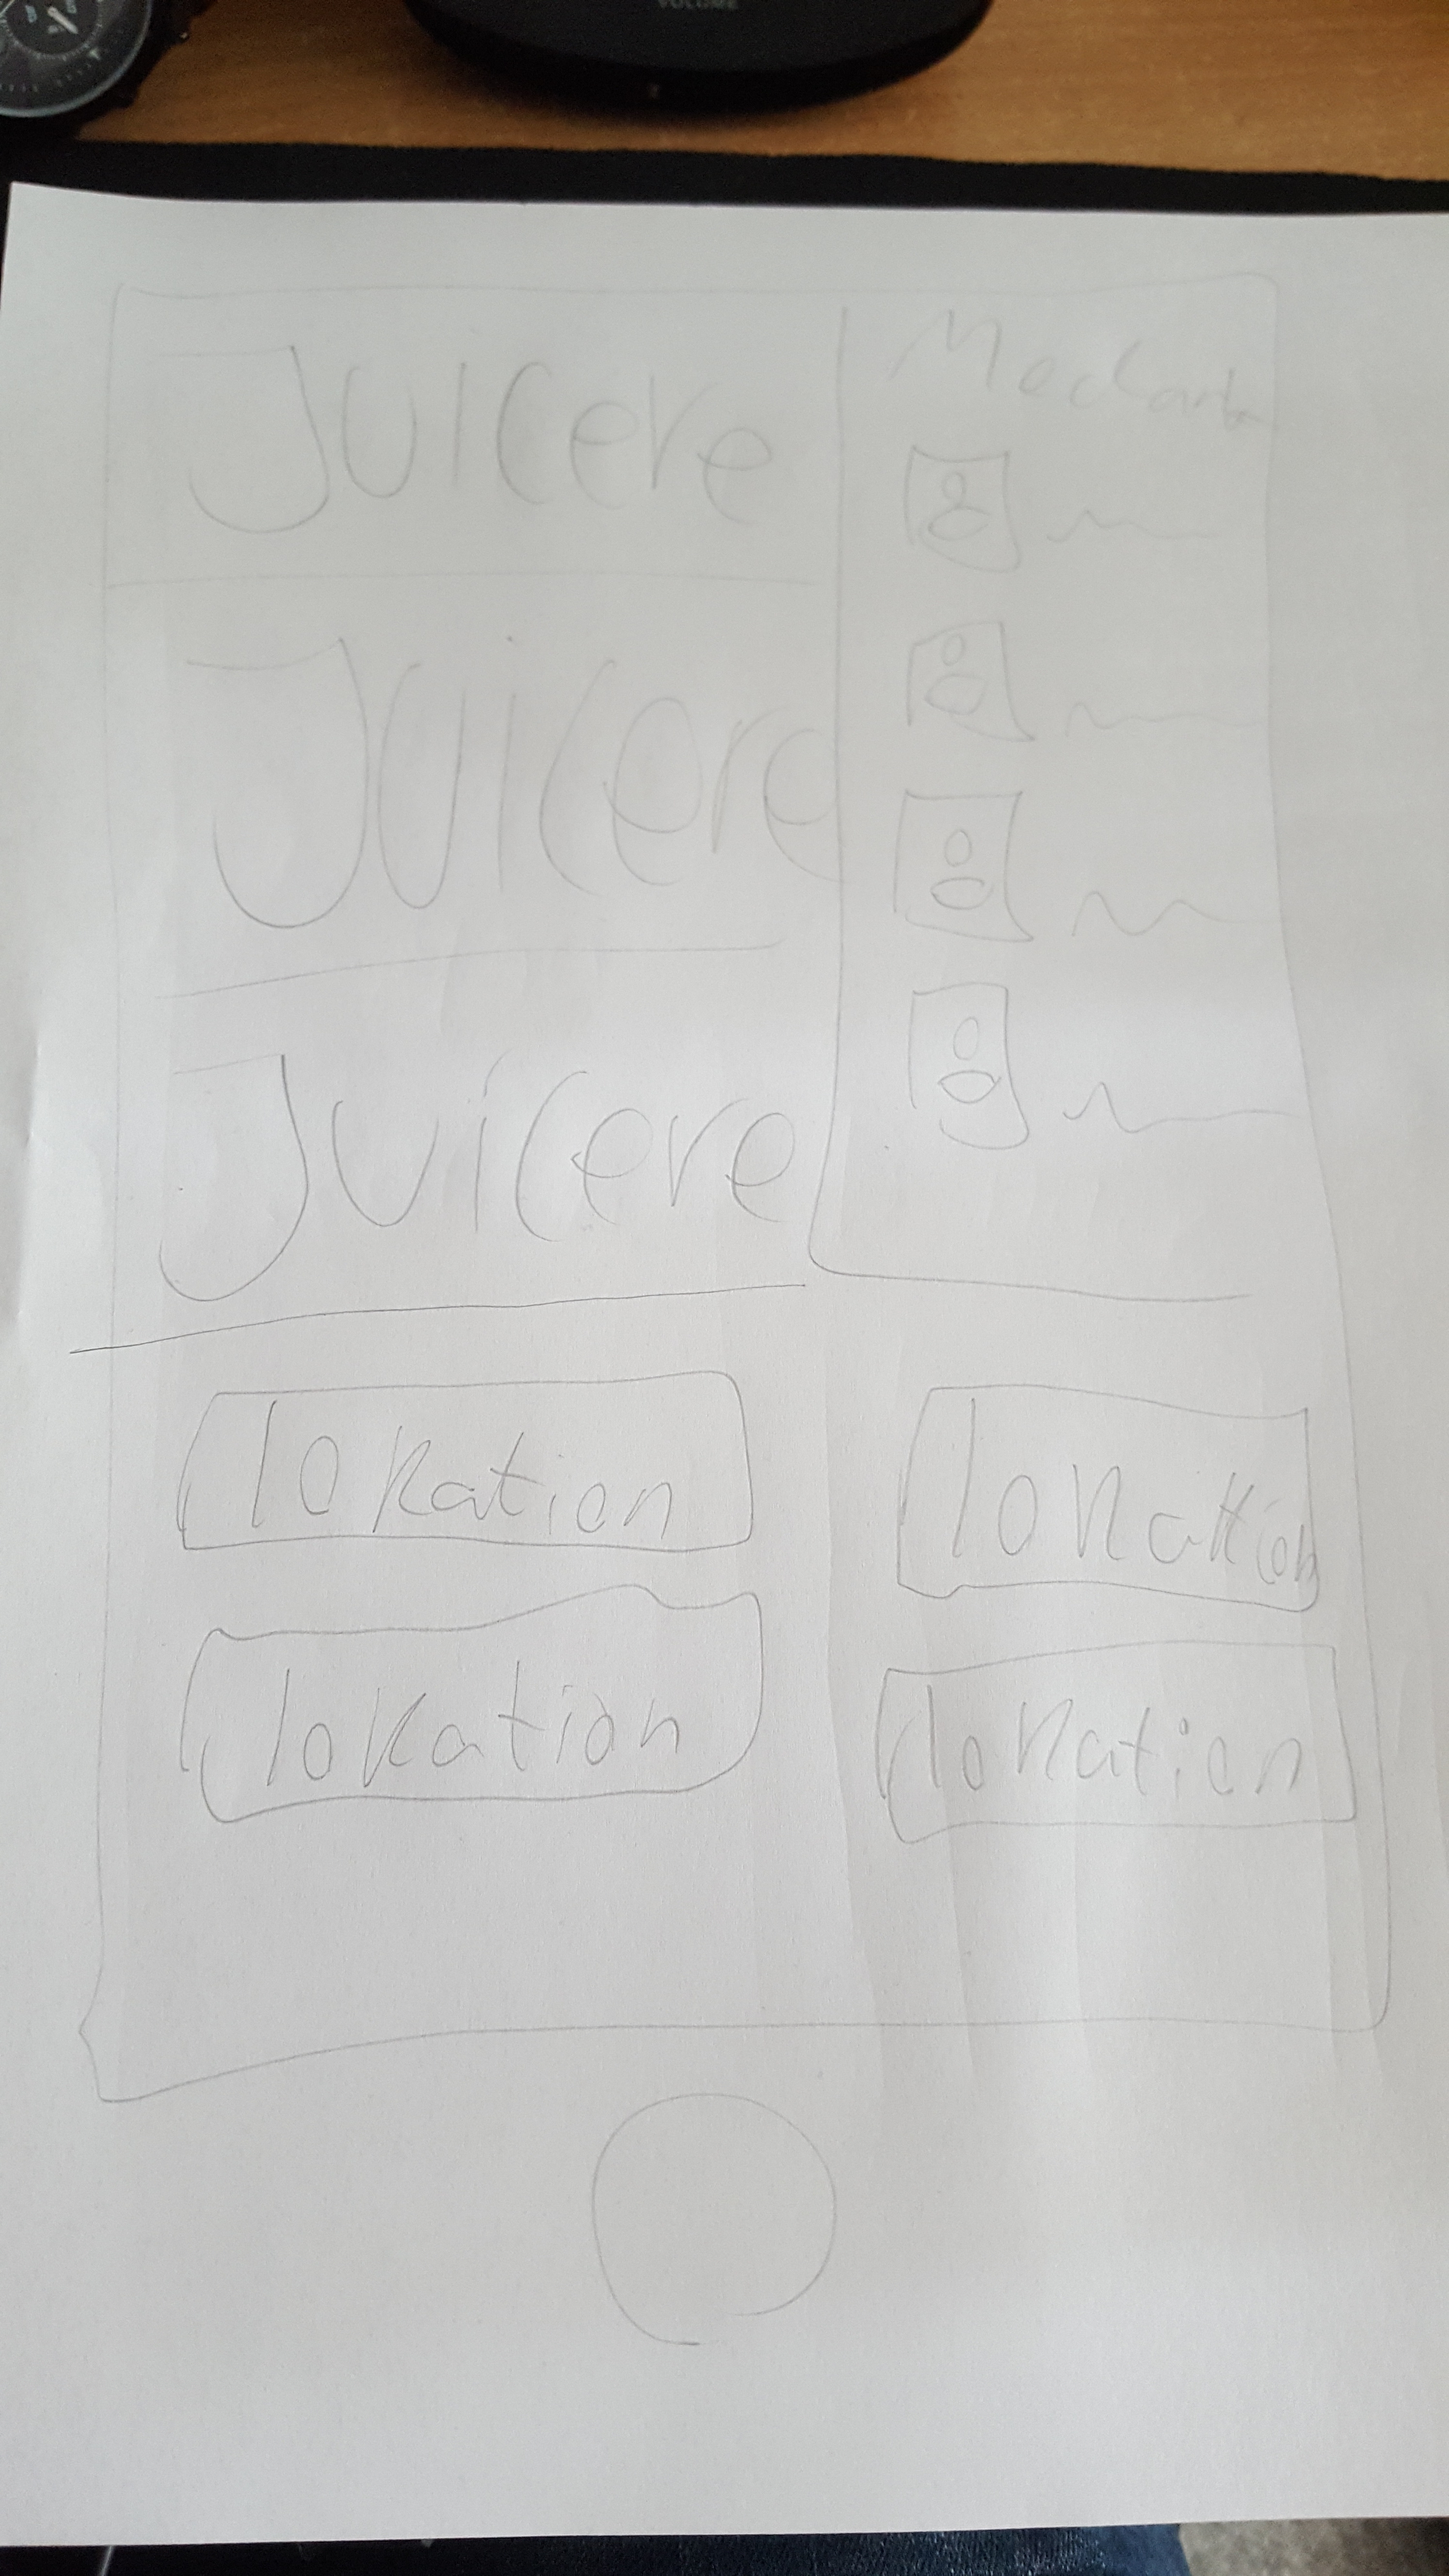 VOLUME
Juicere
Juicere
Juicere
lokation
lokation
lokation
lokation